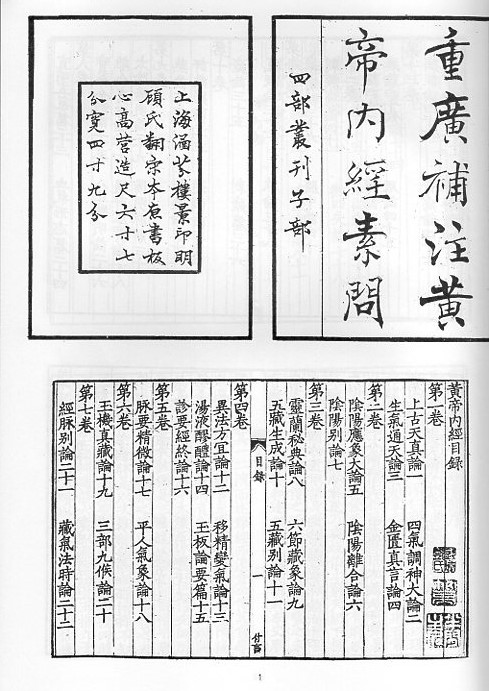 重廣補注黃
帝内經素問
四部叢刊子部
上海涵芬樓景印明
顧氏翻宋本原書板
心高營造尺六寸七
分寬四寸九分
黃帝内經目錄
第一卷
上古天真論一 四氣調神大論二
生氣通天論三 金匱真言論四
第二卷
陰陽應象大論五 陰陽離合論六
陰陽別論七
第三卷
靈蘭秘典論八 六節藏象論九
五藏生成論十 五藏別論十一
目錄 一
第四卷
異法方宜論十二 移精變氣論十三
湯液醪醴論十四 玉板論要篇十五
診要經終論十六
第五卷
脉要精微論十七 平人氣象論十八
第六卷
玉機真藏論十九 三部九候論二十
第七卷
經脉別論二十一 藏氣法時論二十二
1